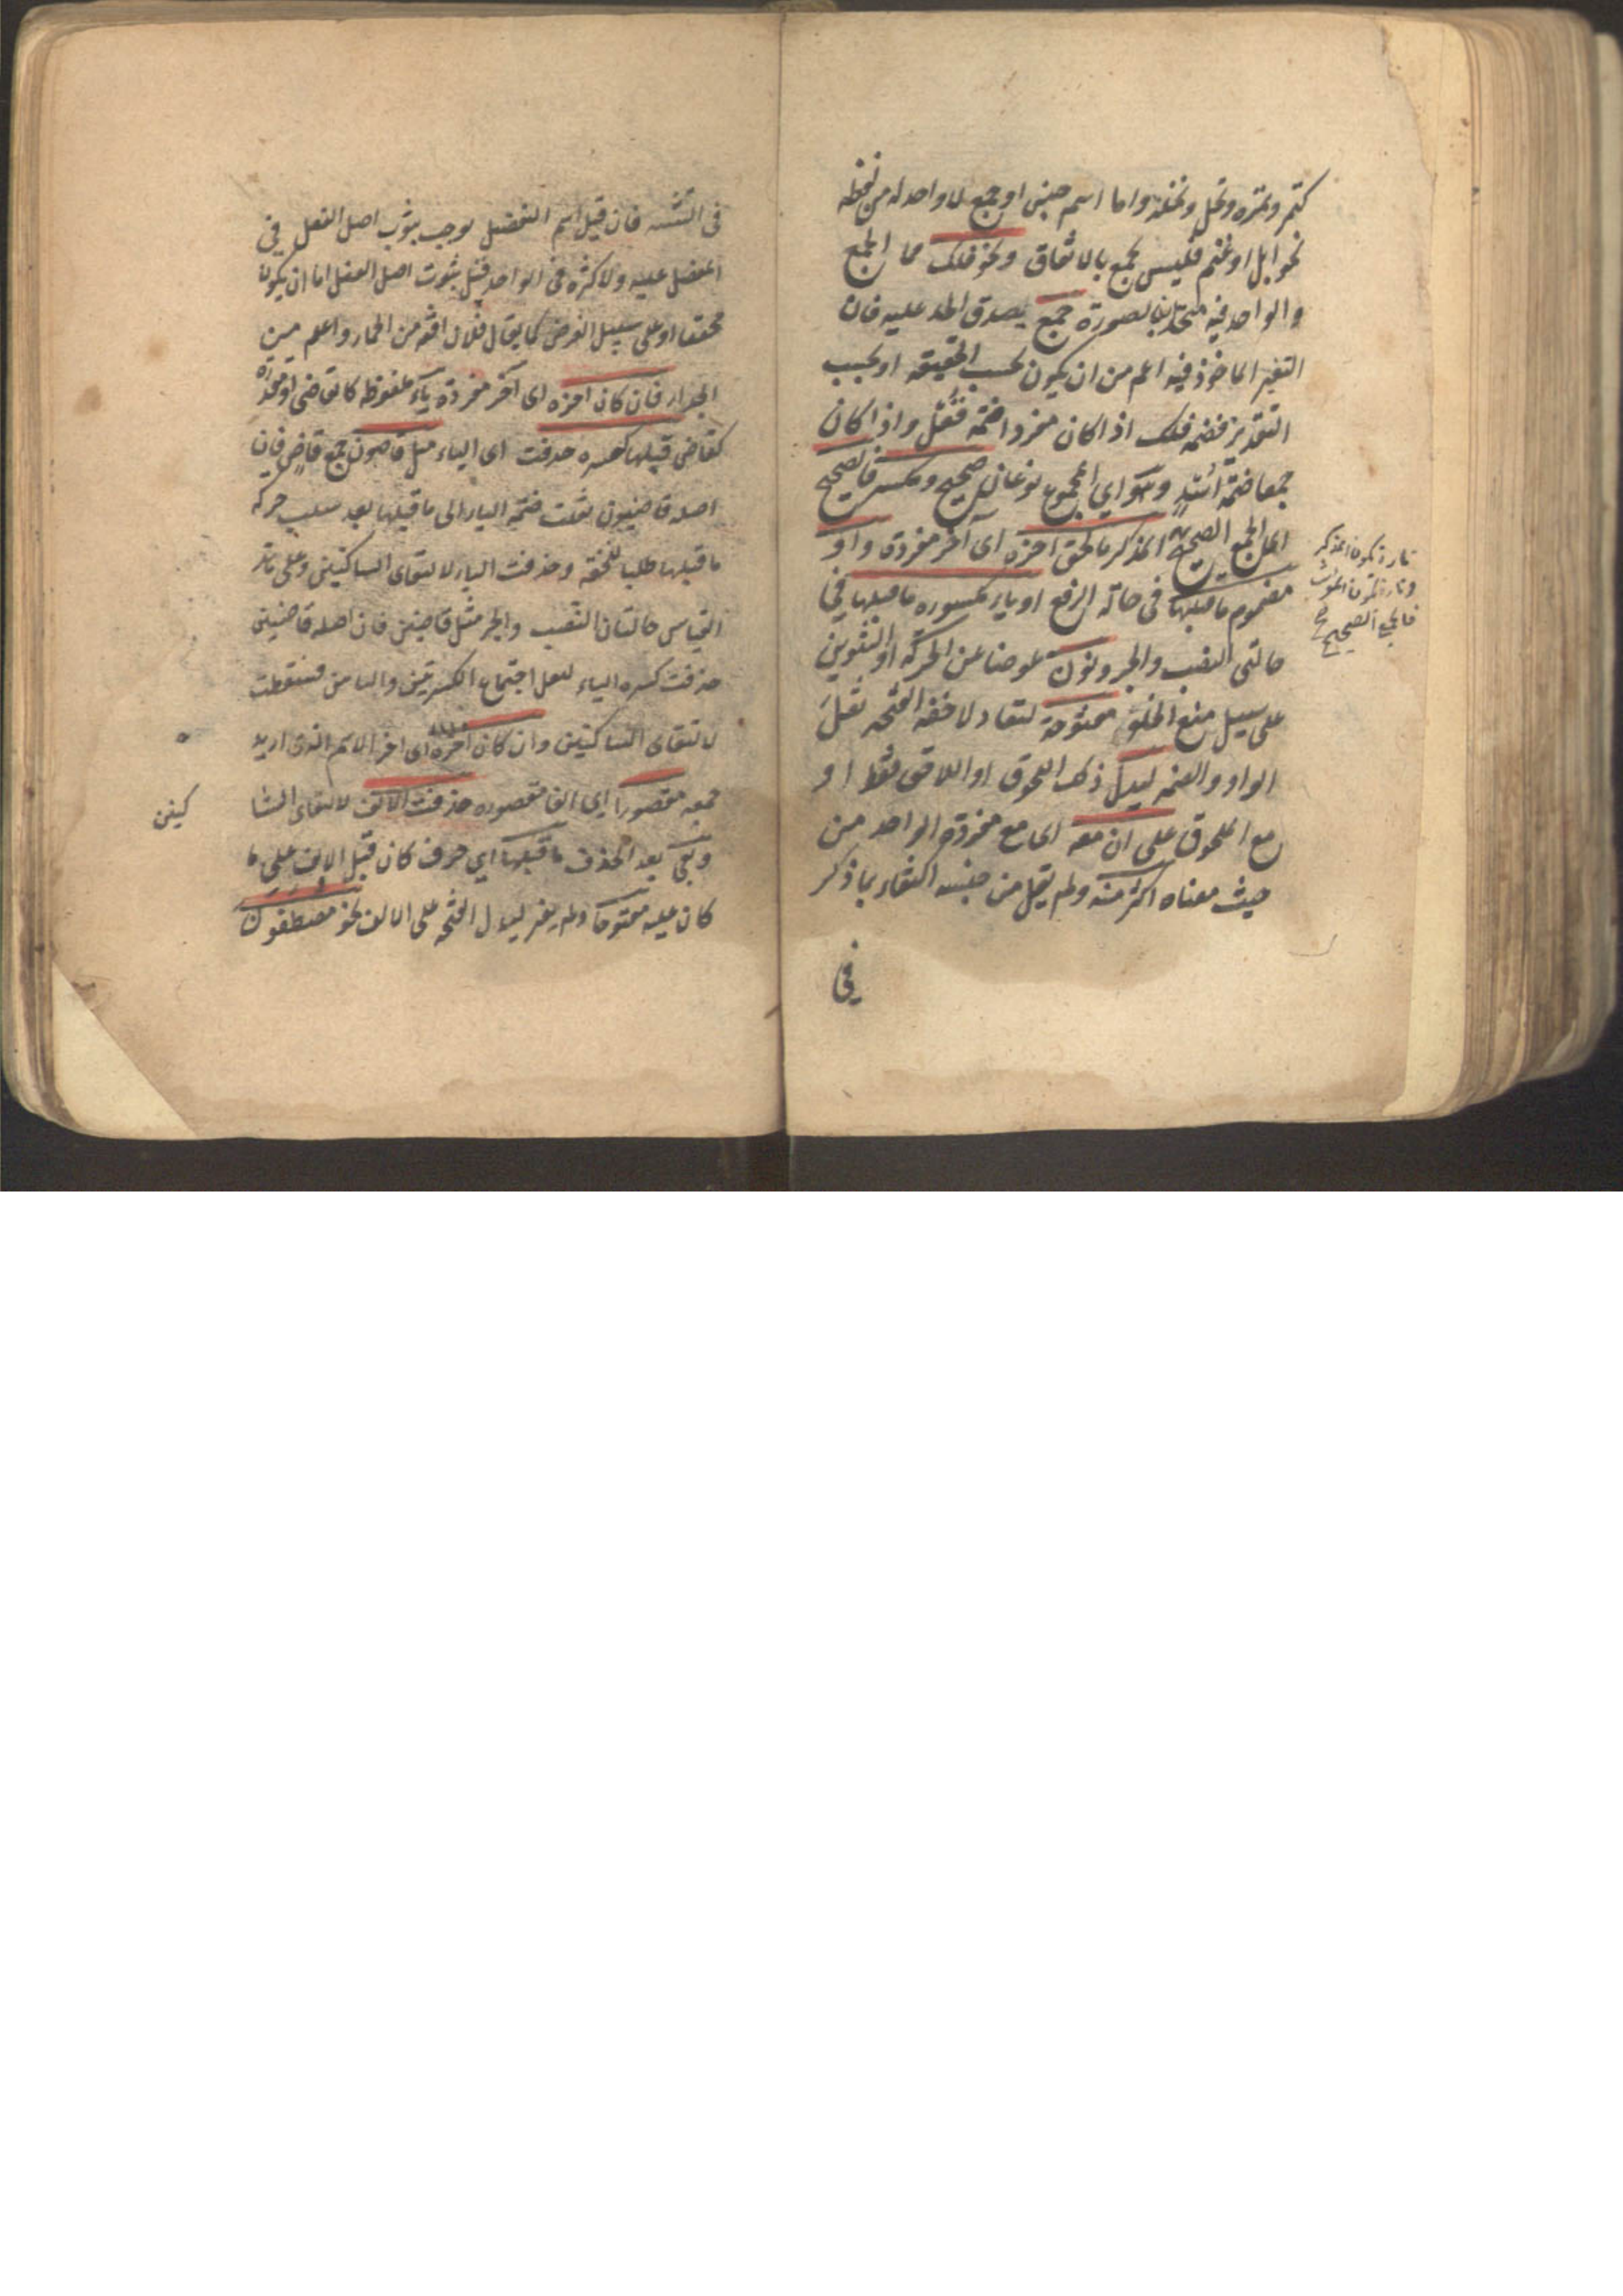 كتمر وتمرة ونخل ونخلة واما اسم جنس او جمع لا واحد له من لفظه
نحو ابل او غنم فليس بجمع بالاتفاق ونحو فلك مما الجمع
والواحد فيه متحدان بالصورة جمع يصدق الحد عليه فان
التغير الماخوذ فيه اعم من ان يكون بحسب الحقيقه او بحسب
التقدير فضمه فلك اذا كان مفردا ضمة قفل واذا كان
جمعا ضمة اسد وهو اي المجموع نوعان صحيح ومكسر فالصحيح
اي الجمع الصحيح المذكر ما لحق اخره اى آخر مفرده واو
مضموم ما قبلها فى حالة الرفع او ياء مكسوره ما قبلها في
حالتى النصب والجر ونون عوضا عن الحركة او التنوين
على سبيل منع الخلو مفتوحة لتعادل خفة الفتحه ثقل
الواو والضمه ليدل ذلك اللحوق او اللاحق فقط او
مع الملحوق على ان معه اى مع مفرده الواحد من
حيث معناه اكثر منه ولم يقل من جنسه اكتفاء بما ذكر
في
تارة يكون المذكر
وتارة يكون المونث
فالجمع الصحيح
فى التثنيه فان قيل اسم التفضيل يوجب ثبوت اصل الفعل في
المفضل عليه ولا كثرة فى الواحد قيل ثبوت اصل الفعل اما ان يكون
محققا او على سبيل الفرض كما يقال فلان افقه من الحمار واعلم من
الجدار فان كان اخره اى آخر مفرده ياء ملفوظه كالقاضى او مقدرة
كقاض قبلها كسره حذفت اى الياء مثل قاضون جمع قاض فان
اصله قاضيون نقلت ضمة الياء الى ما قبلها بعد سلب حركة
ما قبلها طلبا للخفة وحذفت الياء لالتقاى الساكنين وعلى هذا
القياس حالتان النصب والجر مثل قاضين فان اصله قاضيين
حذفت كسره الياء لثقل اجتماع الكسرتين واليا من فسقطت
لالتقاى الساكنين وان كان آخره اى اخر الاسم الذى اريد
جمعه مقصورا اى الفا مقصوره حذفت الالف لالتقاى السا
كنين
وبقى بعد الحذف ما قبلها اي حرف كان قبل الالف على ما
كان عليه مفتوحا ولم يغير ليدل الفتحه على الالف نحو مصطفون